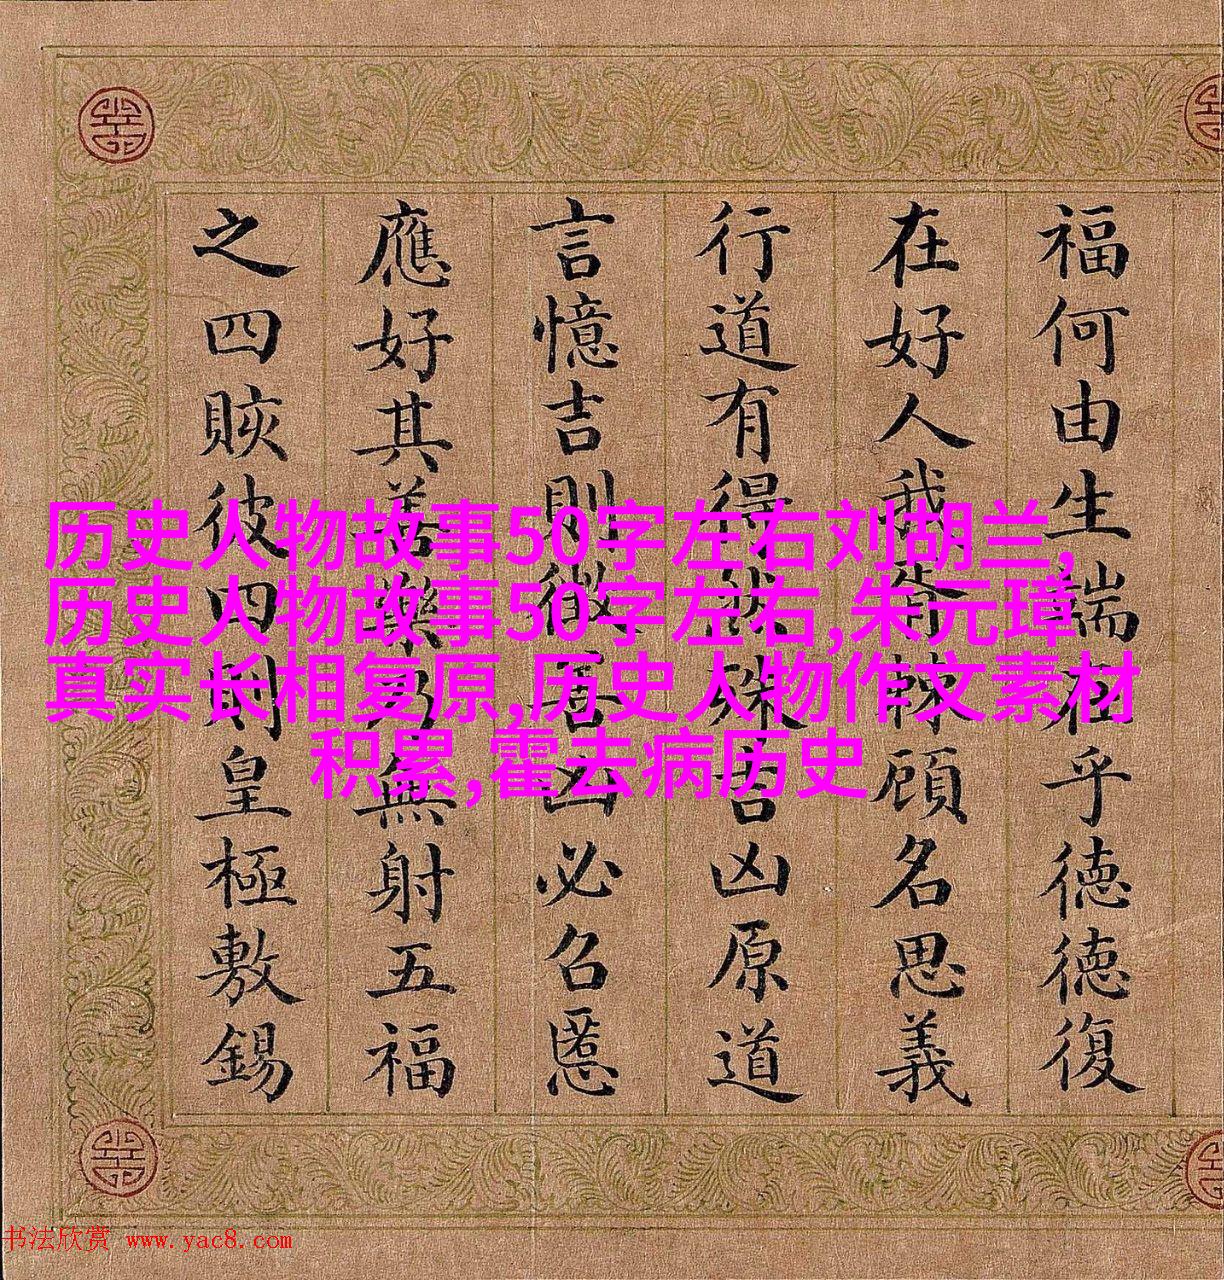 福何由生端在乎德德復
在好人我顧名思義
行道有得殊吉凶原道
言憶吉則徵凶必召慝
應好其善樂乃無射五福
之四賅彼四則皇極敷錫
历史人物故事50字左右刘胡兰,
历史人物故事50字左右,朱元璋
真实长相复原,历史人物作文素材
积累,霍去病历史
书法欣赏 www.yac8.com